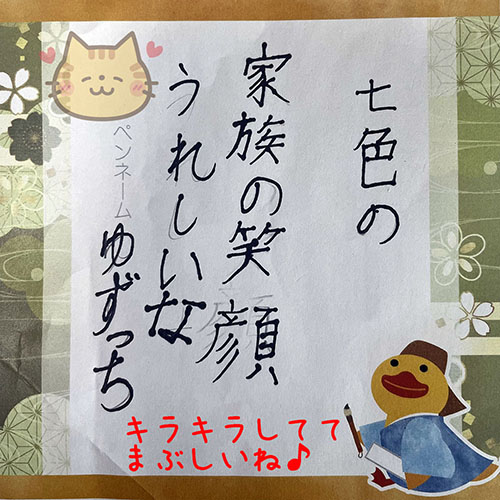 七色の
家族の笑顔
うれしいな
ペンネーム
ゆずっち
キラキラしてて
まぶしいね♪